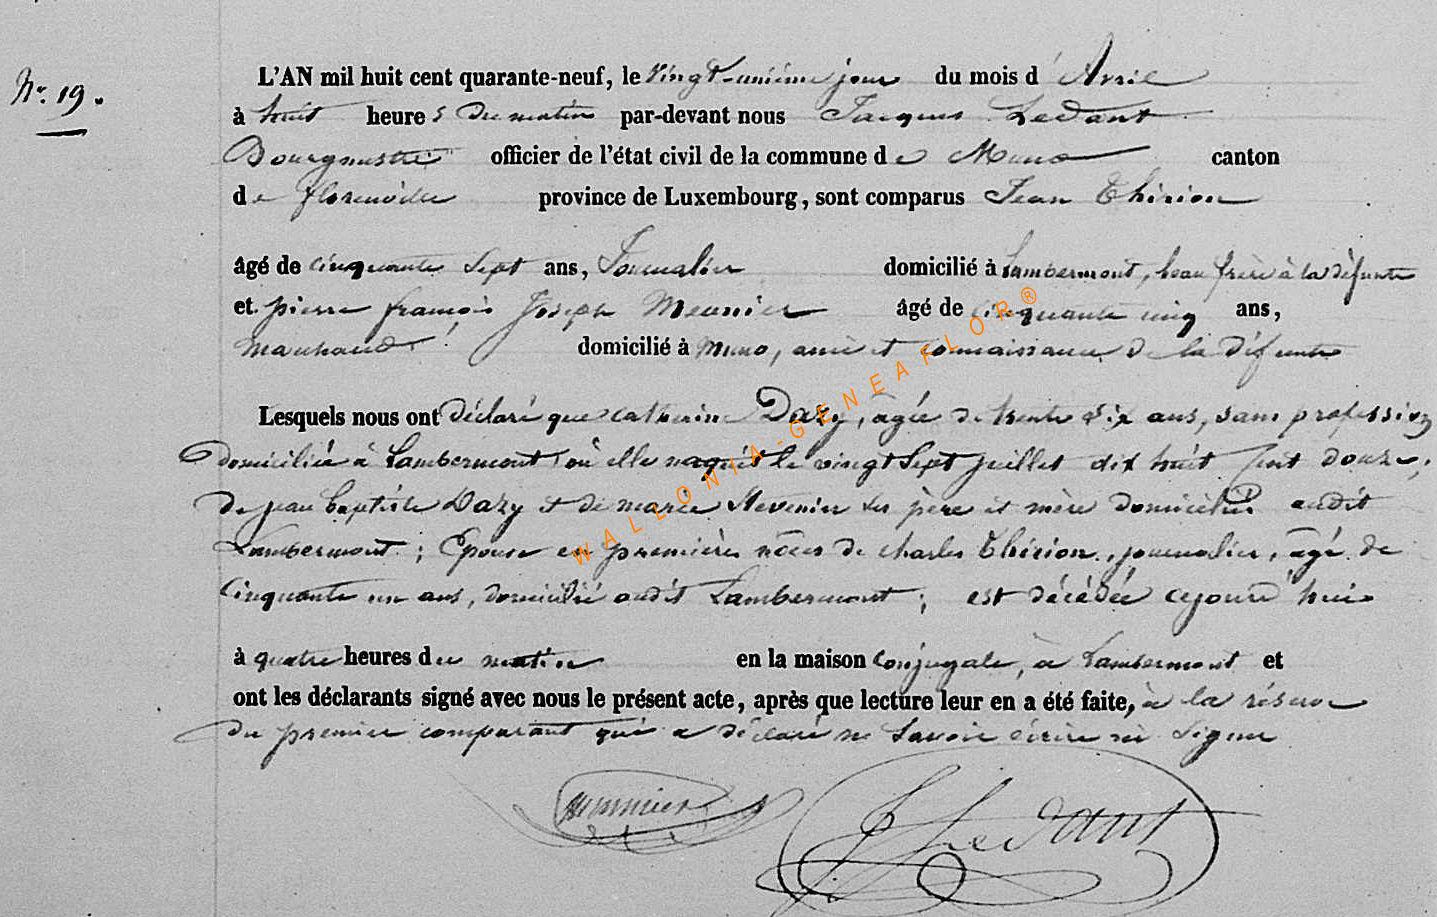 N.° 19.
L'AN mil huit cent quarante-neuf, le vingt-unième jour du mois d'Avril
à huit heures du matin par-devant nous Jacques Ledant
Bourgmestre officier de l'état civil de la commune de Muno canton
de florenville province de Luxembourg, sont comparus Jean Thirion
âgé de cinquante sept ans, Journalier domicilié à Lambermont, beau frère à la défunte
et pierre françois Joseph Meunier âgé de cinquante cinq ans,
marchand domicilié à Muno, ami et connaissance de la défunte
Lesquels nous ont déclaré que catherine Dazy, agée de trente six ans, sans profession
domiciliée à Lambermont où elle naquit le vingt Sept juillet dix huit cent douze,
de jean baptiste Dazy et de marie Stevenin ses père et mère domiciliés audit
Lambermont ; Epouse en premières nôces de charles Thirion, journalier, âgé de
cinquante un ans, domicilié audit Lambermont ; est décédée cejourd'hui
à quatre heures du matin en la maison conjugale, à Lambermont et
ont les déclarants signé avec nous le présent acte, après que lecture leur en a été faite, à la réserve
du premier comparant qui a déclaré ne Savoir écrire ni Signer
Meunier J Ledant
WALLONIA-GENEAFLOR®